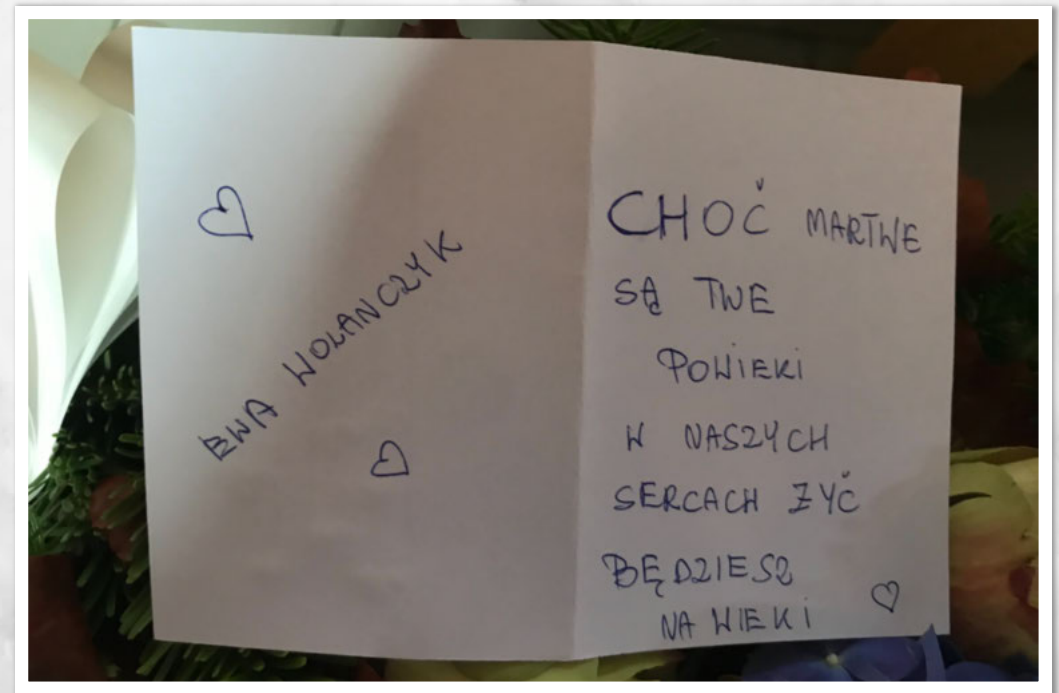 EWA WOLANCZYK
CHOĆ MARTWE
SĄ TWE
POWIEKI
W NASZYCH
SERCACH ŻYĆ
BĘDZIESZ
NA WIEKI